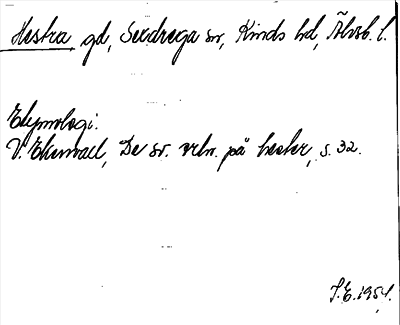 Hestra gd, Sexdrega sn, Kinds hd, Älvsb. l.
Etymologi.
V. Ekenvall, De sv. ortn. på hester, s. 32.
I.E. 1954.